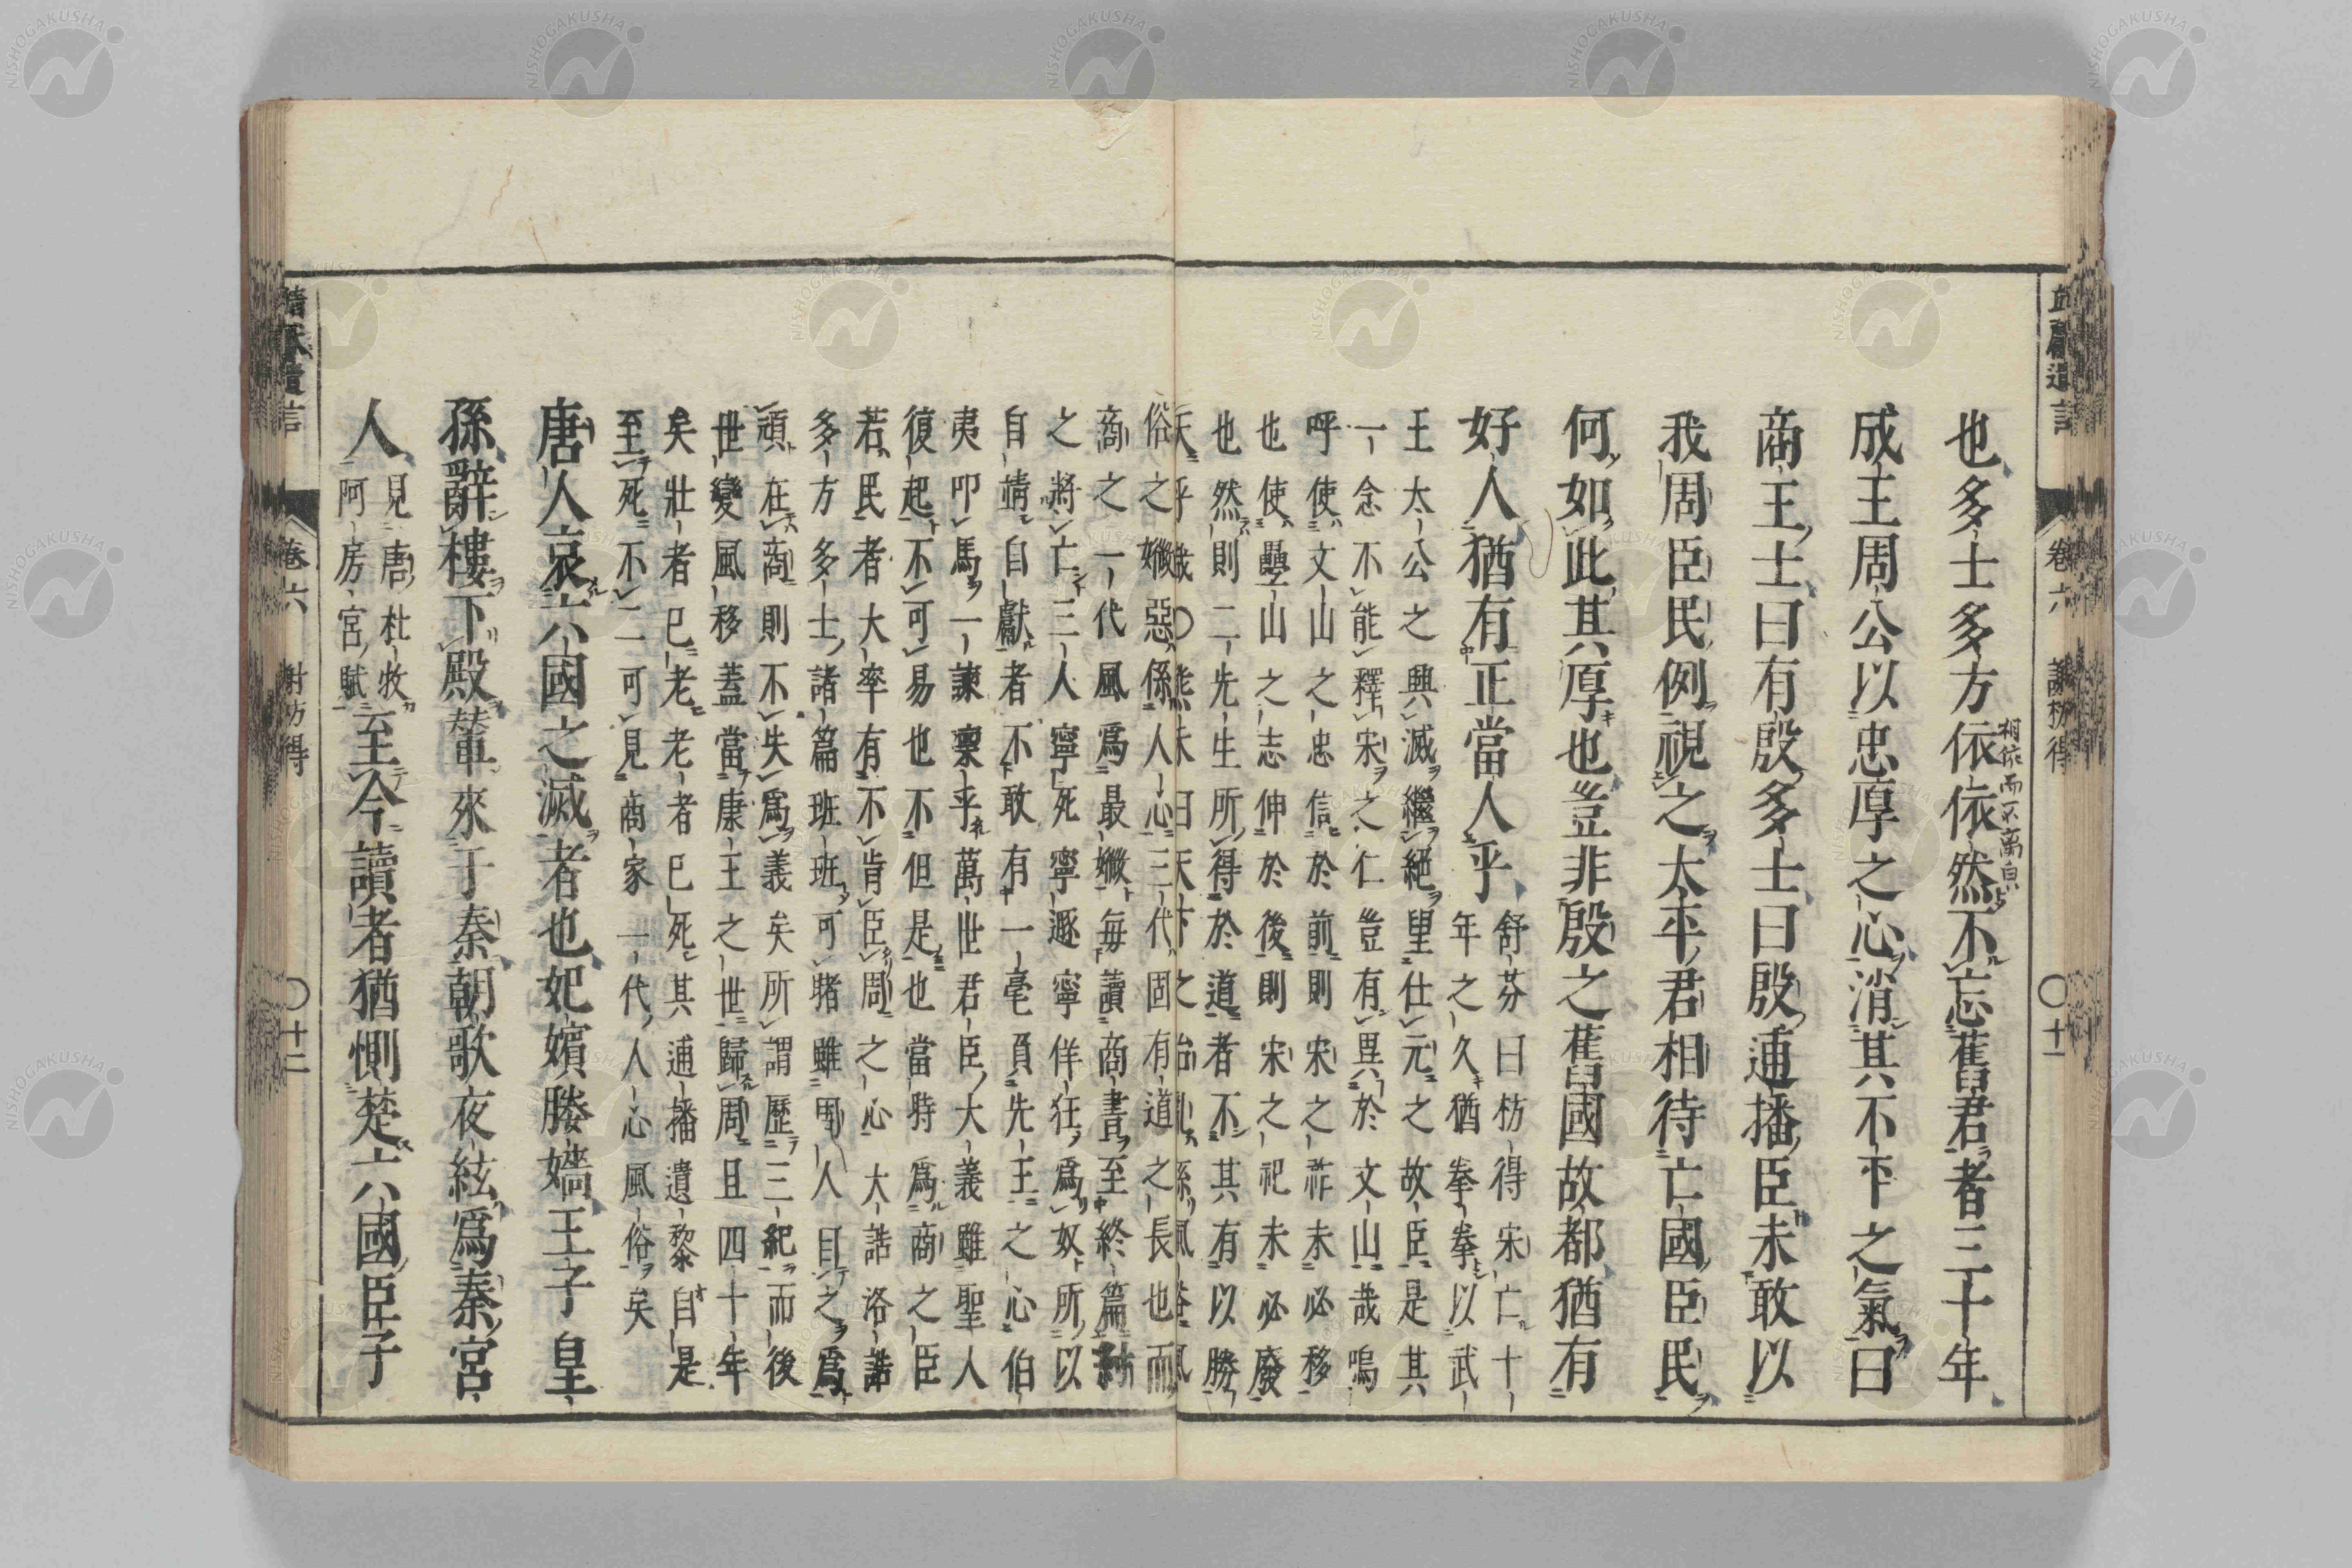 靖獻遺言
卷六
謝枋得
〇十一
也多士多方依依然不忘舊君者三十年
相依而不离皃
成王周公以忠厚之心消其不平之氣曰
商王士曰有殷多士曰殷逋播臣未敢以
我周臣民例視之太平君相待亡國臣民
何如此其厚也豈非殷之舊國故都猶有
好人猶有正當人乎
舒芬曰枋得宋亡十
年之久猶拳拳以武
王太公之興滅繼絕望仕元之故臣是其
一念不能釋宋之仁豈有異於文山哉嗚
呼使文山之忠信於前則宋之祚未必移
也使疊山之志伸於後則宋之祀未必廢
也然則二先生所得於道者不其有以勝
天乎哉〇熊禾曰天下之治亂係風俗風
俗之媺惡係人心三代固有道之長也而
商之一代風爲最媺每讀商書至終篇紂
之將亡三人寧死寧遯寧佯狂爲奴所以
自靖自獻者不敢有一毫負先王之心伯
夷叩馬一諫凜乎萬世君臣大義雖聖人
復起不可易也不但是也當時爲商之臣
若民者大率有不肯臣周之心大誥洛誥
多方多士諸篇班班可睹雖周人目之爲
頑在商則不失爲義矣所謂歷三紀而後
世變風移蓋當康王之世歸周且四十年
矣壯者已老老者已死其逋播遺黎自是
至死不二可見商家一代人心風俗矣
唐人哀六國之滅者也妃嬪媵嬙王子皇
孫辭樓下殿輦來于秦朝歌夜絃爲秦宮
人
見唐杜牧
阿房宮賦
至今讀者猶惻楚六國臣子
靖獻遺言
卷六
謝枋得
〇十二